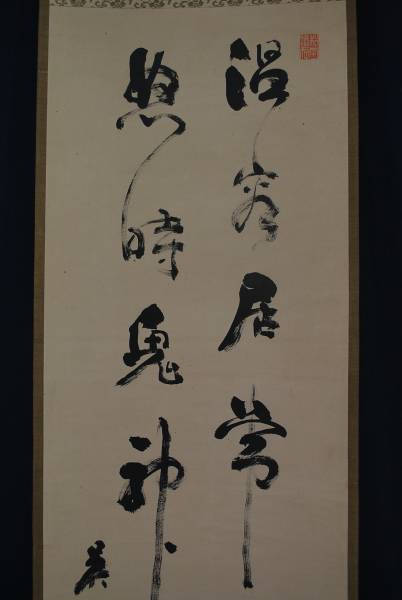 温容居常
怒時鬼神